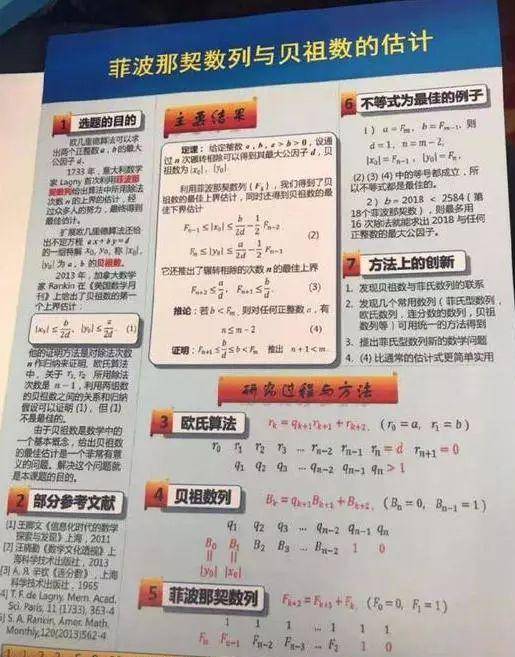 菲波那契数列与贝祖数的估计
1 选题的目的
欧几里德算法可以求
出两个正整数 a , b 的最大
公因子 d.
1733 年,意大利数学
家 Lagny 首次利用菲波那
契数列给出算法中所用除法
次数 n 的上界的估计,经
过众多人的努力,最终得到
最佳估计。
扩展欧几里德算法还给
出不定方程 ax+by=d
的一组特解 x₀, y₀, 称 |x₀|,
|y₀| 为 a , b 的贝祖数。
2013 年,加拿大数学
家 Rankin 在《美国数学月
刊》上给出了贝祖数的第一
个上界估计:
|x₀| ≤ b/2d, |y₀| ≤ a/2d. (1)
他的证明方法是对除法次数
n 作归纳来证明. 欧几里德算法
中,关于 r₁, r₂ 所用除法
次数是 n-1,利用两组数
的贝祖数之间的关系和归纳
假设可以证明 (1), 但 (1)
不是最佳的。
由于贝祖数是数学中的
一个基本概念,给出贝祖数
的最佳估计是一个非常有意
义的问题。解决这个问题就
是本课题的目的。
2 部分参考文献
[1] 王卿文《信息化时代的数学
探索与发现》上海,2011
[2] 汪晓勤《数学文化透视》上
海科学技术出版社,2013
[3] A. Я. 辛钦《连分数》,上海
科学技术出版社,1965
4] T. F. de Lagny, Mem. Acad.
Sci. Paris, 11 (1733), 363-4
5] S. A. Rankin, Amer. Math.
Monthly,120(2013)562-4
主要结果
定理:给定整数 a , b , a > b > 0 , 设通
过 n 次辗转相除可以得到其最大公因子 d , 贝
祖数为 |x₀|, |y₀|.
利用菲波那契数列 {Fₖ},我们得到了贝
祖数的最佳上界估计,同时还得到贝祖数的最
佳下界估计
Fₙ₋₁ ≤ |x₀| ≤ b/2d − 1/2 Fₙ₋₂
(2)
Fₙ ≤ |y₀| ≤ a/2d − 1/2 Fₙ₋₁
它还推出了辗转相除的次数 n 的最佳上界
Fₙ₊₂ ≤ a/d, Fₙ₊₁ ≤ b/d. (3)
推论:若 b < Fₘ , 则对任何正整数 a , 有
n ≤ m − 2 (4)
证明:Fₙ₊₁ ≤ b/d ≤ b < Fₘ 推出 n + 1 < m.
6 不等式为最佳的例子
1) a = Fₘ, b = Fₘ₋₁, 则
d = 1, n = m − 2,
|x₀| = Fₙ₋₁, |y₀| = Fₙ,
(2) (3) (4) 中的等号都成立,所
以不等式都是最佳的。
2) b = 2018 < 2584 (第
18个菲波那契数),则最多用
16 次除法就能求出 2018 与任何
正整数的最大公因子。
7 方法上的创新
1. 发现贝祖数与菲氏数列的联系
2. 发现几个常用数列(菲氏型数列,
欧氏数列,连分数的数列,贝祖
数列等)可用统一的方法得到
3. 提出菲氏型数列新的数学问题
4. (4) 比通常的估计式更简单实用
研究过程与方法
3 欧氏算法 rₖ = qₖ₊₁rₖ₊₁ + rₖ₊₂, (r₀ = a, r₁ = b)
r₀ r₁ r₂ r₃ … rₙ₋₂ rₙ₋₁ rₙ = d rₙ₊₁ = 0
q₁ q₂ q₃ … qₙ₋₂ qₙ₋₁ qₙ > 1
4 贝祖数列 Bₖ = qₖ₊₁Bₖ₊₁ + Bₖ₊₂, (Bₙ = 0, Bₙ₋₁ = 1)
q₁ q₂ q₃ … qₙ₋₂ qₙ₋₁ qₙ
B₀ B₁ B₂ B₃ … Bₙ₋₂ 1 0
|| ||
|y₀| |x₀|
5 菲波那契数列 Fₖ₊₂ = Fₖ₊₁ + Fₖ, (F₀ = 0, F₁ = 1)
1 1 1 … 1 1 1
Fₙ Fₙ₋₁ Fₙ₋₂ Fₙ₋₃ … F₂ 1 0